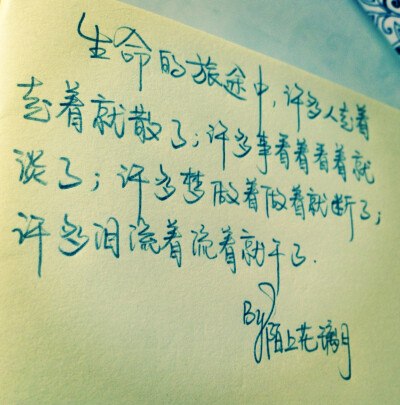 生命的旅途中，许多人走着
走着就散了；许多事看着看着就
淡了；许多梦做着做着就断了；
许多泪流着流着就干了．
By 陌上花漓月